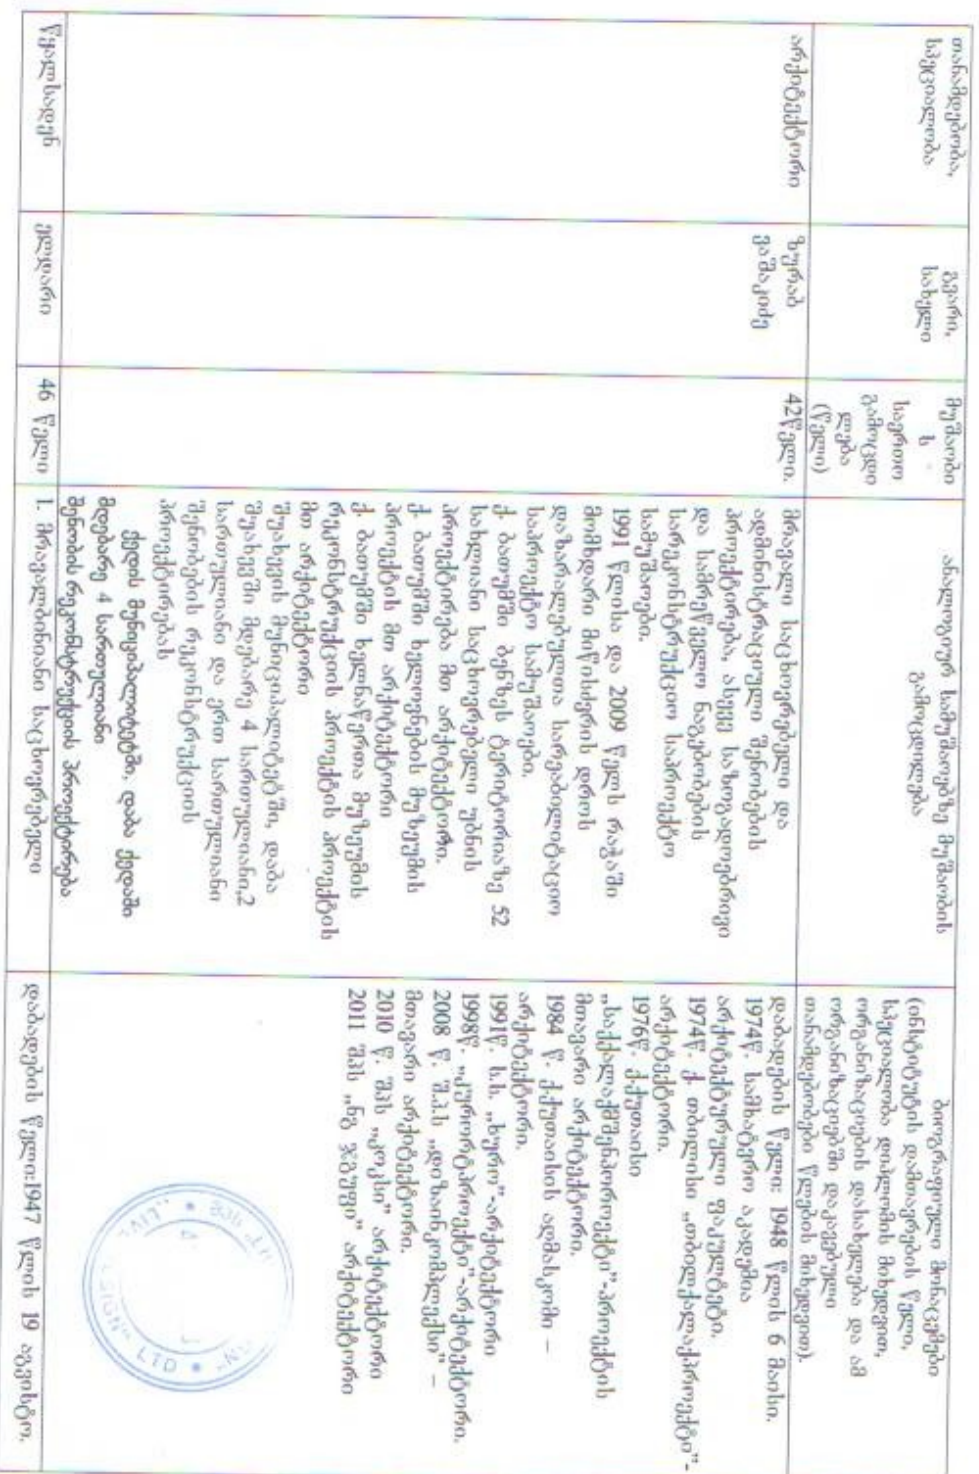 თანამდებობა,
სპეციალობა
გვარი,
სახელი
მუშაობი
ს
საერთო
გამოცდი
ლება
(წელი)
ანალოგიურ სამუშაოებზე მუშაობის
გამოცდილება
ბიოგრაფიული მონაცემები
(ინსტიტუტის დამთავრების წელი,
სპეციალობა დიპლომის მიხედვით,
ორგანიზაციების დასახელება და ამ
ორგანიზაციებში დაკავებული
თანამდებობები წლების მიხედვით).
არქიტექტორი
ზურაბ
ვაშაკიძე
42წელი.
მრავალი საცხოვრებელი და
ადმინისტრაციული შენობების
პროექტირება, ასევე საზოგადოებრივი
და სამრეწველო ნაგებობების
სარეკონსტრუქციო საპროექტო
სამუშაოები.
1991 წლისა და 2009 წელს რაჭაში
მომხდარი მიწისძვრის დროს
დაზარალებულთა სარეაბილიტაციო
საპროექტო სამუშაოები.
ქ. ბათუმში ბენზეს ტერიტორიაზე 52
სახლიანი საცხოვრებელი უბნის
პროექტირება მთ არქიტექტორი.
ქ. ბათუმში ხელოვნების მუზეუმის
პროექტის მთ არქიტექტორი
ქ. ბათუმში ხელნაწერთა მუზეუმის
რეკონსტრუქციის პროექტის პროექტის
მთ არქიტექტორი
შუახევის მუნიციპალიტეტში, დაბა
შუახევში მდებარე 4 სართულიანი,2
სართულიანი და ერთ სართულიანი
შენობების რეკონსტრუქციის
პროექტირებას
ქედის მუნიციპალიტეტში, დაბა ქედაში
მდებარე 4 სართულიანი
შენობის რეკონსტრუქციის პროექტირება
დაბადების წელი: 1948 წლის 6 მაისი.
1974წ. სამხატვრო აკადემია
არქიტექტურული ფაკულტეტი.
1974წ. ქ. თბილისი „თბილქალაქპროექტი"-
არქიტექტორი.
1976წ. ქ.ქუთაისი
„საქქალაქმშენპროექტი"-პროექტის
მთავარი არქიტექტორი.
1984 წ. ქ.ქუთაისის აღმასკომი –
არქიტექტორი.
1991წ. ს.ს. „ხურო"-არქიტექტორი
1998წ. „კურორტპროექტი"-არქიტექტორი.
2008 წ. შ.პ.ს „დიზაინკომპლექსი" –
მთავარი არქიტექტორი.
2010 წ. შპს „კოკსი" არქიტექტორი
2011 შპს „ნგ ჯგუფი" არქიტექტორი
LTD
წყალსადენ
ელდარი
46 წელი
1. მრავალბინიანი საცხოვრებელი
დაბადების წელი:1947 წლის 19 აგვისტო.